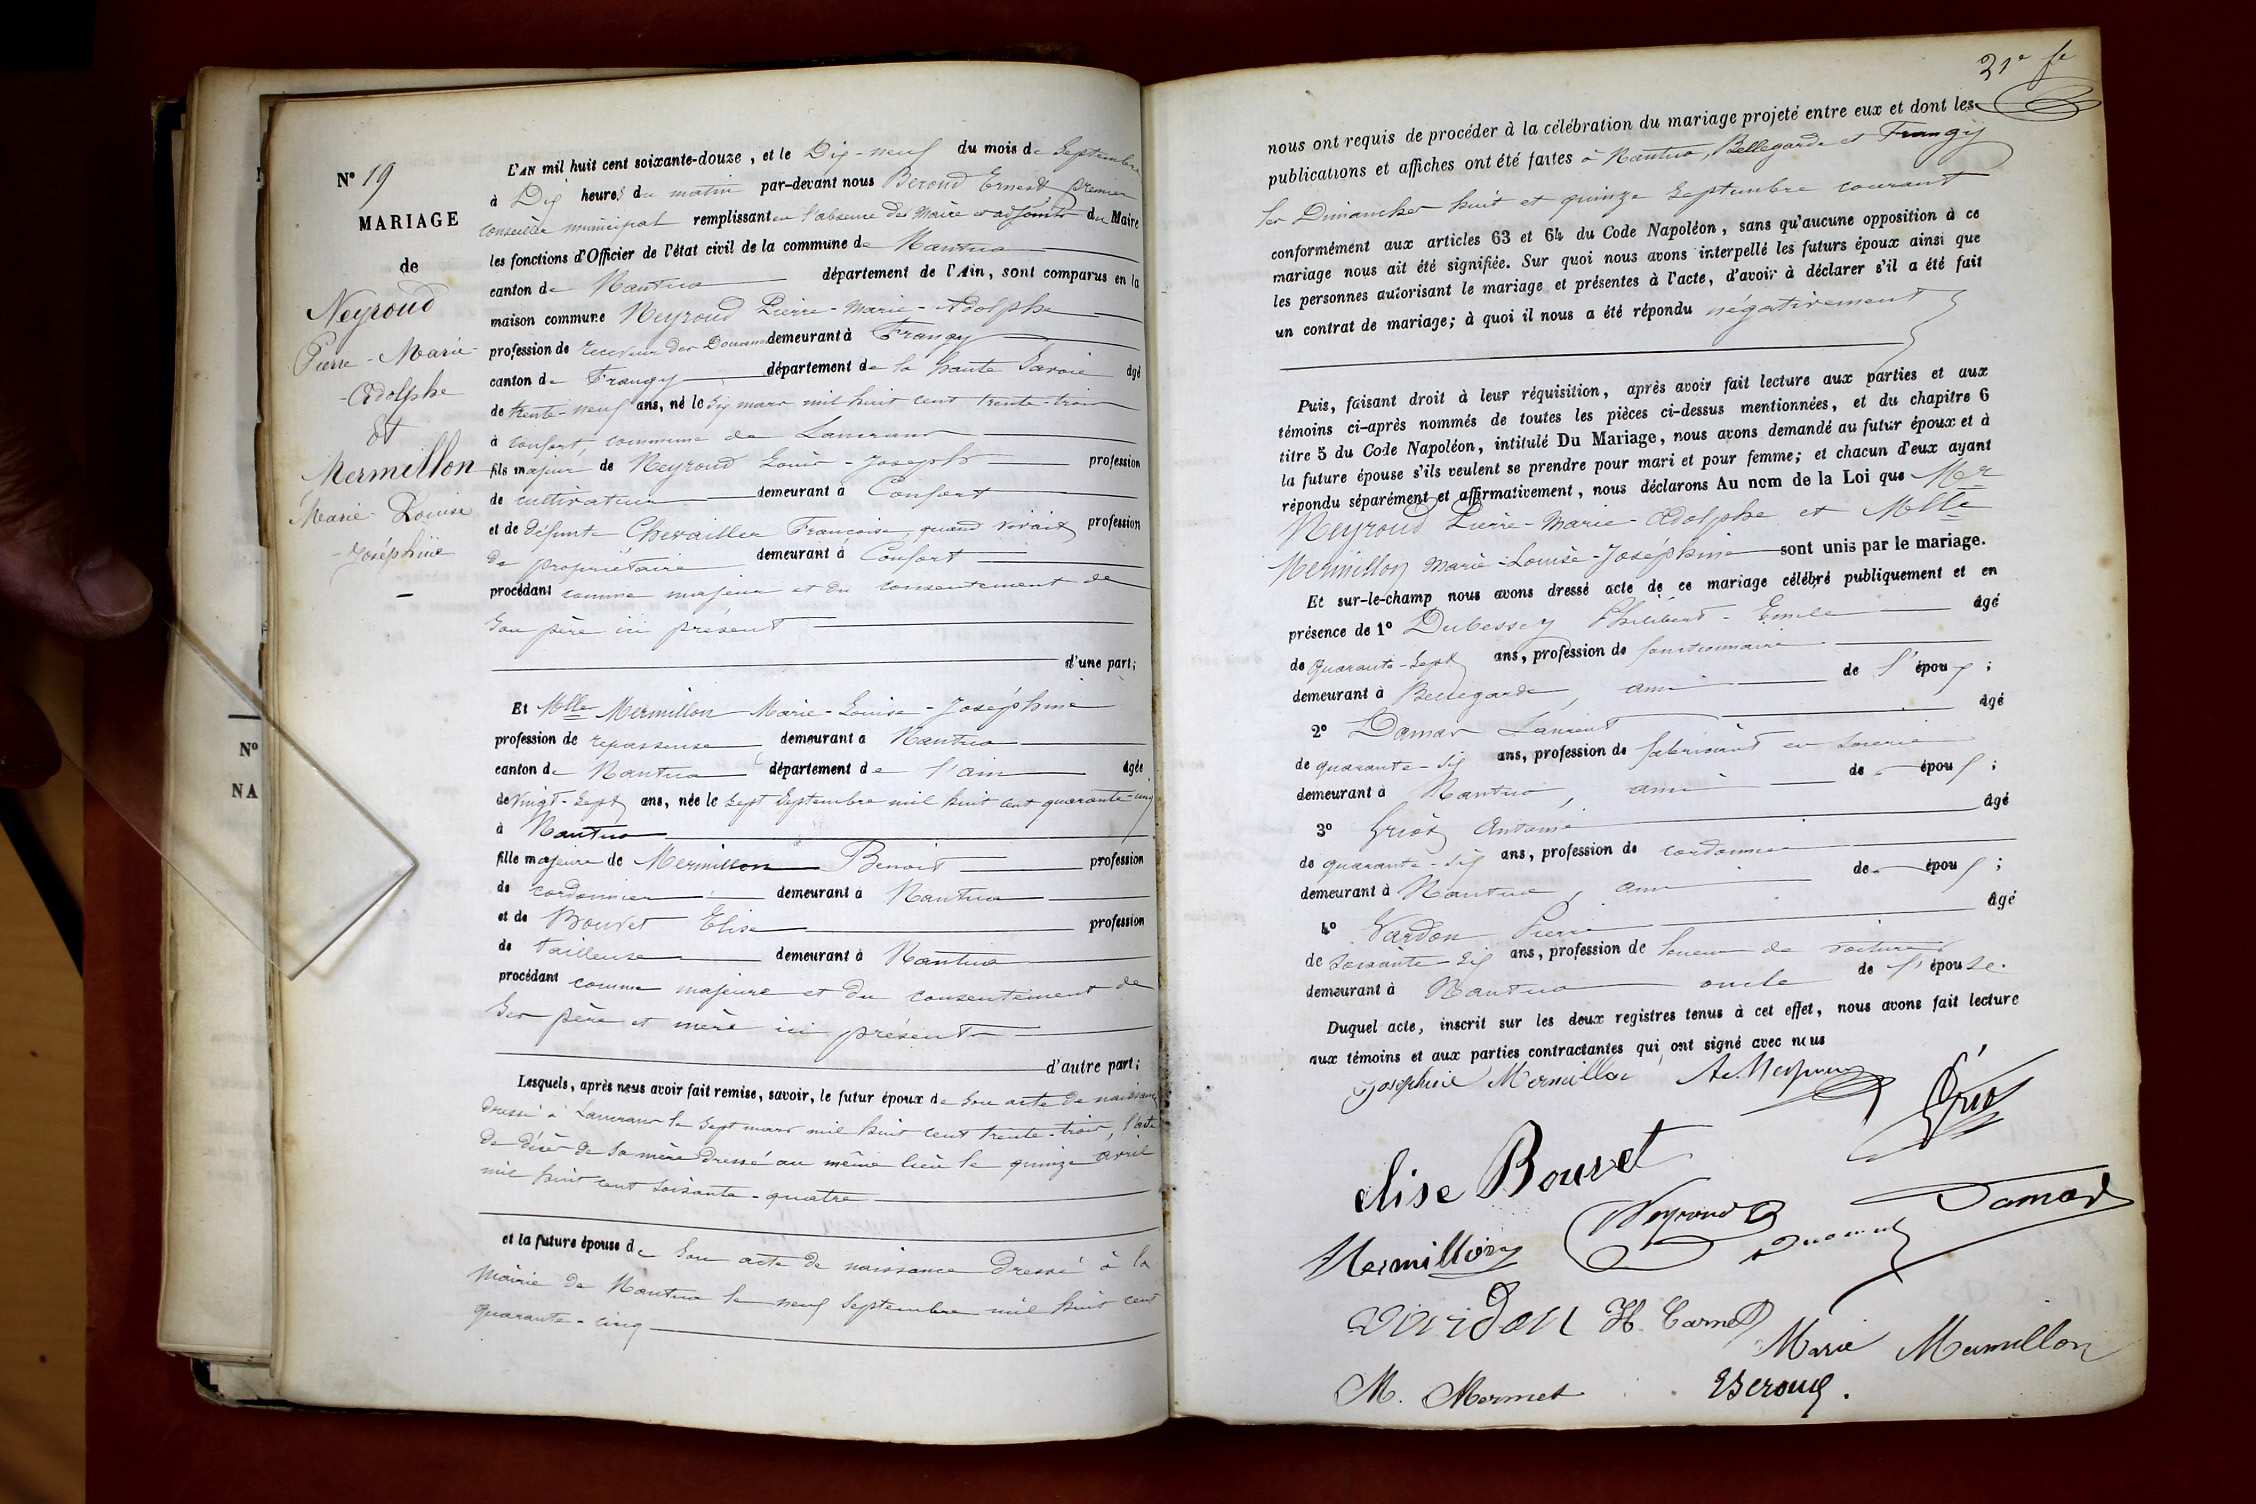 N° 19
MARIAGE
de
Neyroud
Pierre-Marie-
Adolphe
et
Mermillon
Marie-Louise
-Joséphine
L'AN mil huit cent soixante-douze, et le Dix-neuf du mois de Septembre
à Dix heures du matin par-devant nous Béroud Ernest premier
conseiller municipal remplissant en l'absence des Maire et adjoints du Maire
les fonctions d'Officier de l'état civil de la commune de Nantua
canton de Nantua département de l'Ain, sont comparus en la
maison commune Neyroud Pierre-Marie-Adolphe
profession de receveur des Douanes demeurant à Frangy
canton de Frangy département de la haute Savoie âgé
de trente-neuf ans, né le six mars mil huit cent trente-trois
à Confort, commune de Lancrans
fils majeur de Neyroud Louis-Joseph profession
de cultivateur demeurant à Confort
et de défunte Chevallier Françoise, quand vivait profession
de propriétaire demeurant à Confort
procédant comme majeur et du consentement de
son père ici présent
d'une part;
Et Melle Mermillon Marie-Louise-Joséphine
profession de repasseuse demeurant à Nantua
canton de Nantua département de l'ain âgée
de vingt-sept ans, née le sept Septembre mil huit cent quarante-cinq
à Nantua
fille majeure de Mermillon Benoit profession
de cordonnier demeurant à Nantua
et de Bouvet Elise profession
de tailleuse demeurant à Nantua
procédant comme majeure et du consentement de
ses père et mère ici présents
d'autre part;
Lesquels, après nous avoir fait remise, savoir, le futur époux de son acte de naissance
dressé à Lancrans le sept mars mil huit cent trente-trois, l'acte
de décès de sa mère dressé au même lieu le quinze avril
mil huit cent soixante-quatre
et la future épouse de son acte de naissance dressé à la
Mairie de Nantua le neuf Septembre mil huit cent
quarante-cinq
N°
NA
21e fe
nous ont requis de procéder à la célébration du mariage projeté entre eux et dont les
publications et affiches ont été faites à Nantua, Bellegarde et Frangy
les Dimanches huit et quinze Septembre courant
conformément aux articles 63 et 64 du Code Napoléon, sans qu'aucune opposition à ce
mariage nous ait été signifiée. Sur quoi nous avons interpellé les futurs époux ainsi que
les personnes autorisant le mariage et présentes à l'acte, d'avoir à déclarer s'il a été fait
un contrat de mariage; à quoi il nous a été répondu négativement
Puis, faisant droit à leur réquisition, après avoir fait lecture aux parties et aux
témoins ci-après nommés de toutes les pièces ci-dessus mentionnées, et du chapitre 6
titre 5 du Code Napoléon, intitulé Du Mariage, nous avons demandé au futur époux et à
la future épouse s'ils veulent se prendre pour mari et pour femme; et chacun d'eux ayant
répondu séparément et affirmativement, nous déclarons Au nom de la Loi que Mr
Neyroud Pierre-Marie-Adolphe et Melle
Mermillon Marie-Louise-Joséphine sont unis par le mariage.
Et sur-le-champ nous avons dressé acte de ce mariage célébré publiquement et en
présence de 1° Dubessey Philibert-Emile âgé
de quarante-sept ans, profession de fonctionnaire
demeurant à Bellegarde, ami de l'époux;
2° Damas Laurent âgé
de quarante-six ans, profession de fabricant en
demeurant à Nantua, ami de époux;
3° Griot Antoine âgé
de quarante-six ans, profession de cordonnier
demeurant à Nantua, ami de époux;
4° Vardon Pierre âgé
de soixante-six ans, profession de loueur de voitures
demeurant à Nantua oncle de l'épouse.
Duquel acte, inscrit sur les deux registres tenus à cet effet, nous avons fait lecture
aux témoins et aux parties contractantes qui ont signé avec nous
Joséphine Mermillon A. Neyroud
Griot
elise Bouvet
Mermillon Neyroud Damas
H. Carnet
Marie Mermillon
M. Mermet EBeroud.